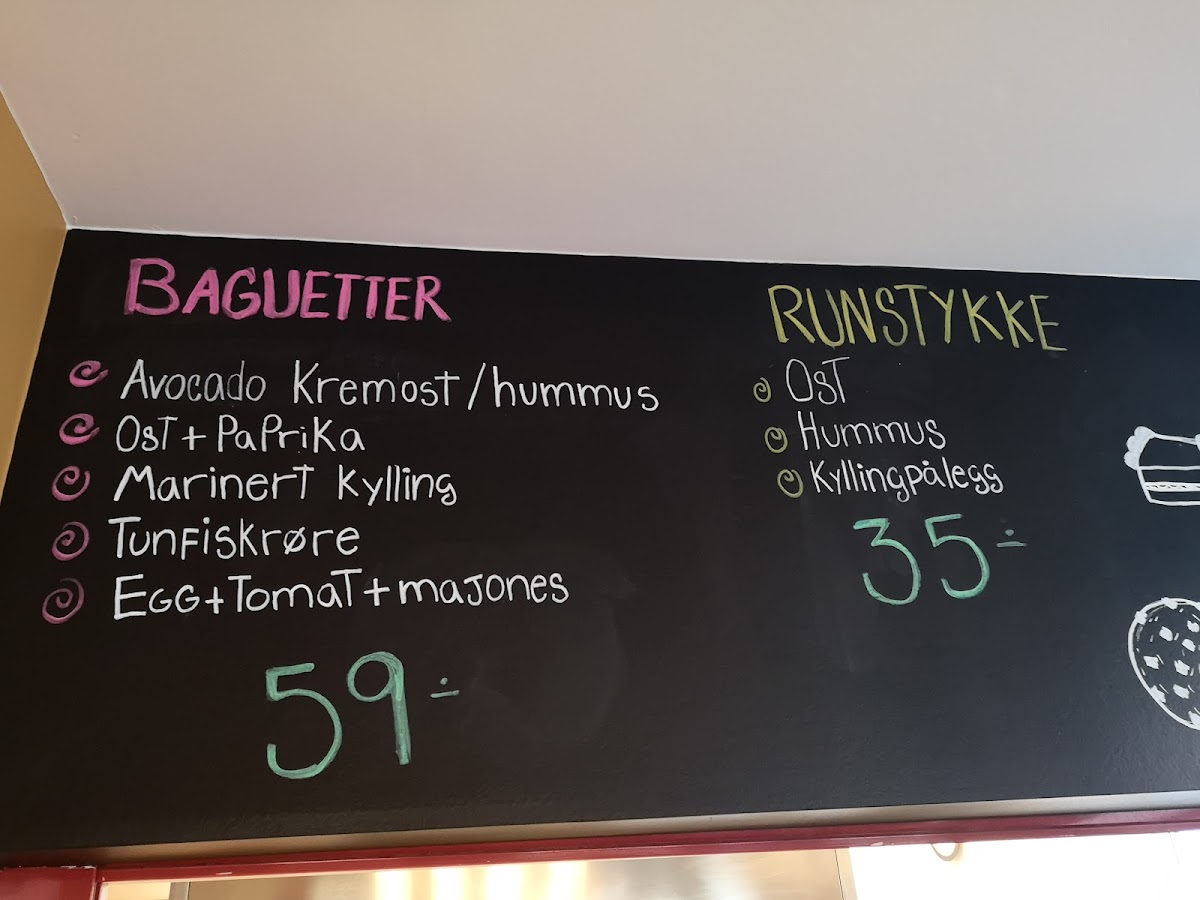 BAGUETTER
Avocado Kremost/hummus
Ost+Paprika
Marinert kylling
Tunfiskrøre
Egg+Tomat+majones
59÷
RUNSTYKKE
Ost
Hummus
Kyllingpålegg
35÷